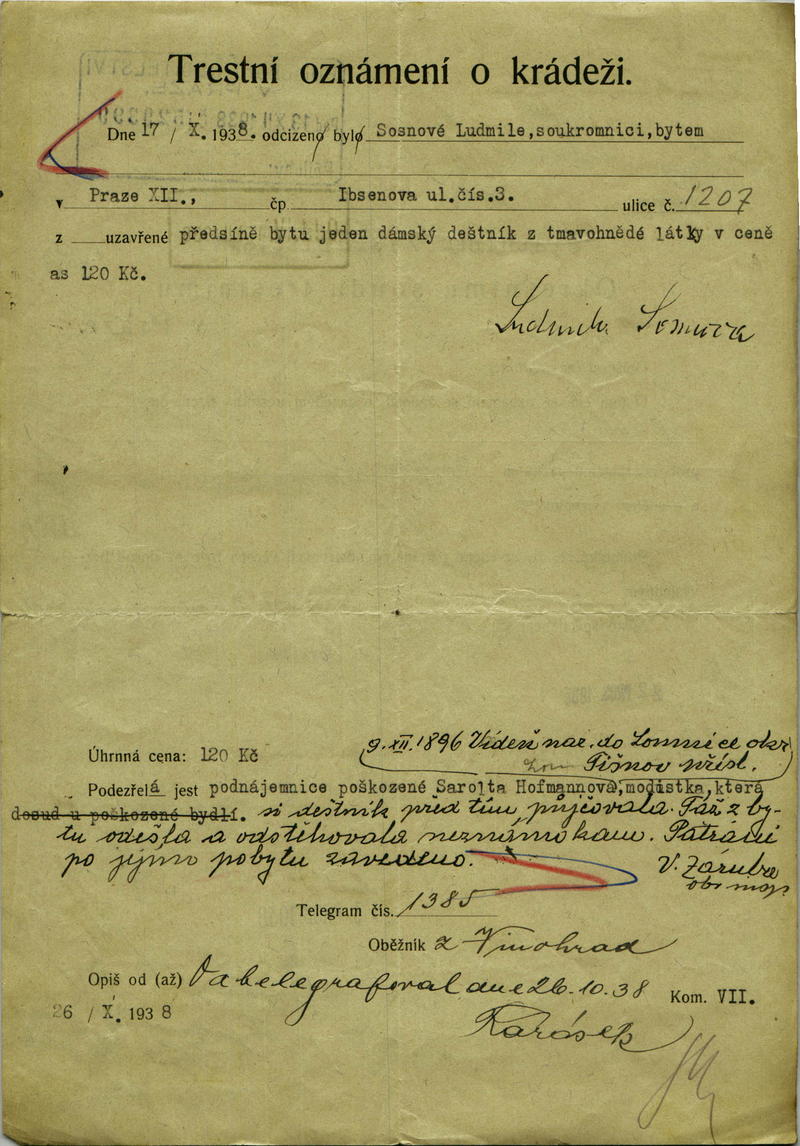 Trestní oznámení o krádeži.
Dne 17 / X. 1938. odcizeno bylo Sosnové Ludmile,soukromnici,bytem
v Praze XII., čp Ibsenova ul.čís.3. ulice č. 1207
z uzavřené předsíně bytu jeden dámský deštník z tmavohnědé látky v ceně
as 120 Kč.
Ludmila
Úhrnná cena: 120 Kč
9. XII. 1896 Vídeň nar. do Lomnice okr.
Tišnov přísl.
Podezřelá jest podnájemnice poškozené Sarolta Hofmannová,modistka,která
dosud u poškozené bydlí. si deštník před tím půjčovala. Táž z by-
tu odešla a odstěhovala neznámo kam. Pátrání
po jejím pobytu zavedeno.
V. Záruba
Telegram čís. 1385
Oběžník z Vinohrad
Opiš od (až) telegrafoval dne 26.10.38
Kom. VII.
26 / X. 1938
Karásek